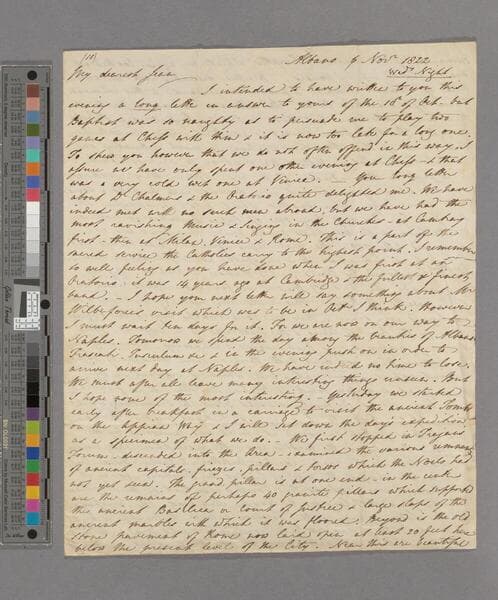 (11)
Albano 6 Nov.r 1822
Wed.y Night
My dearest Jean
I intended to have written to you this
evening a long letter in answer to yours of the 16th of Oct. but
Baptist was so naughty as to persuade me to play two
games at Chess with him & it is now too late for a long one.
To shew you however that we do not often offend in this way, I
assure we have only spent one other evening at Chess & that
was a very cold wet one at Venice. Your long letter
about Dr Chalmers & the Oratorio quite delighted me. We have
indeed met with no such men abroad, but we have had the
most ravishing Music & Singing in the Churches at Cambray
first - then at Milan, Venice & Rome. This is a part of the
sacred service the Catholics carry to the highest point. I remember
so well feeling as you have done when I was first at an
Oratorio. it was 14 years ago at Cambridge & the fullest & finest
band. I hope your next letter will say something about Mr
Wilberforce's visit which was to be in Oct. I think. However
I must wait ten days for it. For we are now on our way to
Naples. Tomorrow we spend the day among the beauties of Albano
Frascati, Tusculum &c & in the evening push on in order to
arrive next day at Naples. We have indeed no time to lose.
We must after all leave many interesting things unseen. But
I hope none of the most interesting. - Yesterday we started
early after breakfast in a carriage to visit the ancient Tombs
on the Appian Way & I will set down the day's expedition
as a specimen of what we do. - We first stopped in Trajan's
Forum - descended into the Area - examined the various remnants
of ancient capitals, friezes, pillars & torsos which the Noels had
not yet seen. The grand pillar is at one end - in the centre
are the remains of perhaps 40 granite pillars which supported
the ancient Basilica or Court of Justice & large slabs of the
ancient marbles with which it was floored. Beyond is the old
stone pavement of Rome now laid open at least 20 feet here
below the present level of the City. Near this are beautiful